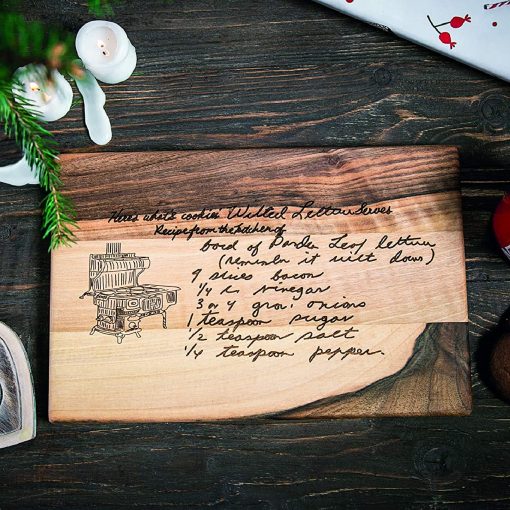 Here's what's cookin' Wilted Lettuce Serves
Recipe from the kitchen of
of Leaf lettuce
(remember it wilt down)
9 slices bacon
1/4 c vinegar
3 or 4 onions
1 teaspoon sugar
1/2 teaspoon salt
1/4 teaspoon pepper.